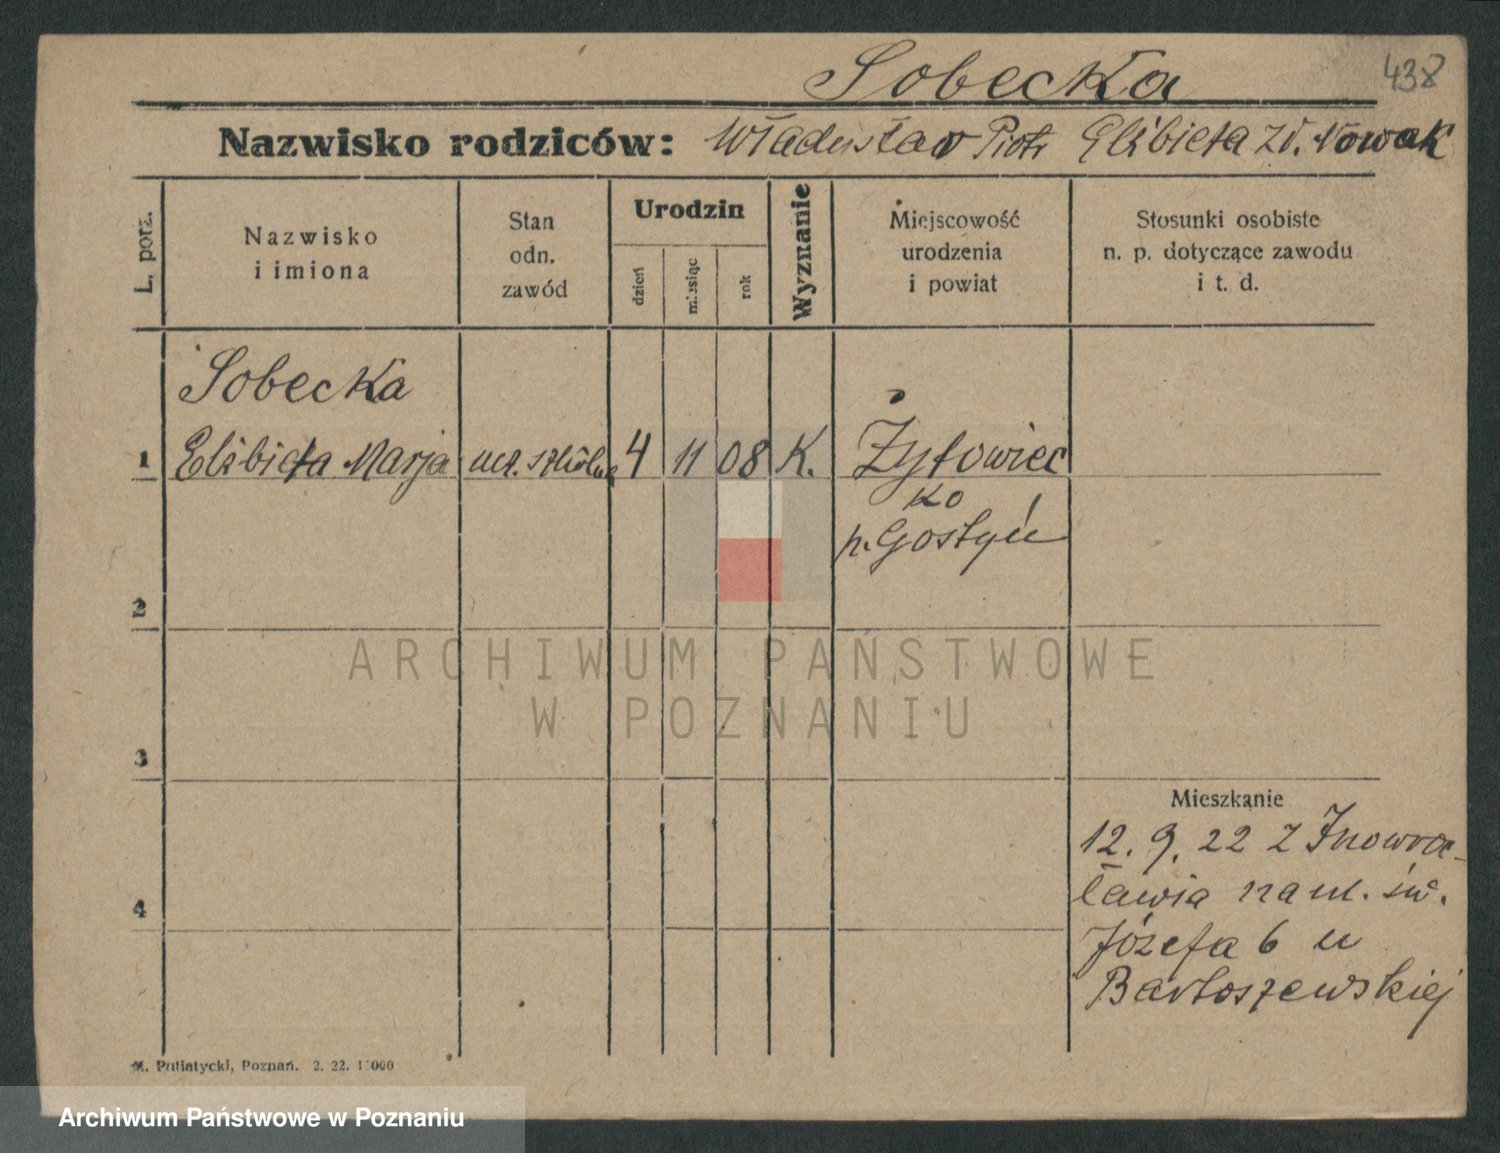 Sobecka
438
Nazwisko rodziców: Władysław Piotr Elżbieta zd. Nowak
L. porz.
Nazwisko
i imiona
Stan
odn.
zawód
Urodzin
dzień
miesiąc
rok
Wyznanie
Miejscowość
urodzenia
i powiat
Stosunki osobiste
n. p. dotyczące zawodu
i t. d.
Sobecka
1 Elżbieta Marja ucz. szkolna 4 11 08 K. Żytowiec
ko
p. Gostyń
2
ARCHIWUM PAŃSTWOWE
W POZNANIU
3
Mieszkanie
12. 9. 22 z Inowroc-
ławia na ul. św.
4
Józefa 6 u
Bartoszewskiej
M. Putiatycki, Poznań. 2. 22. 1000
Archiwum Państwowe w Poznaniu